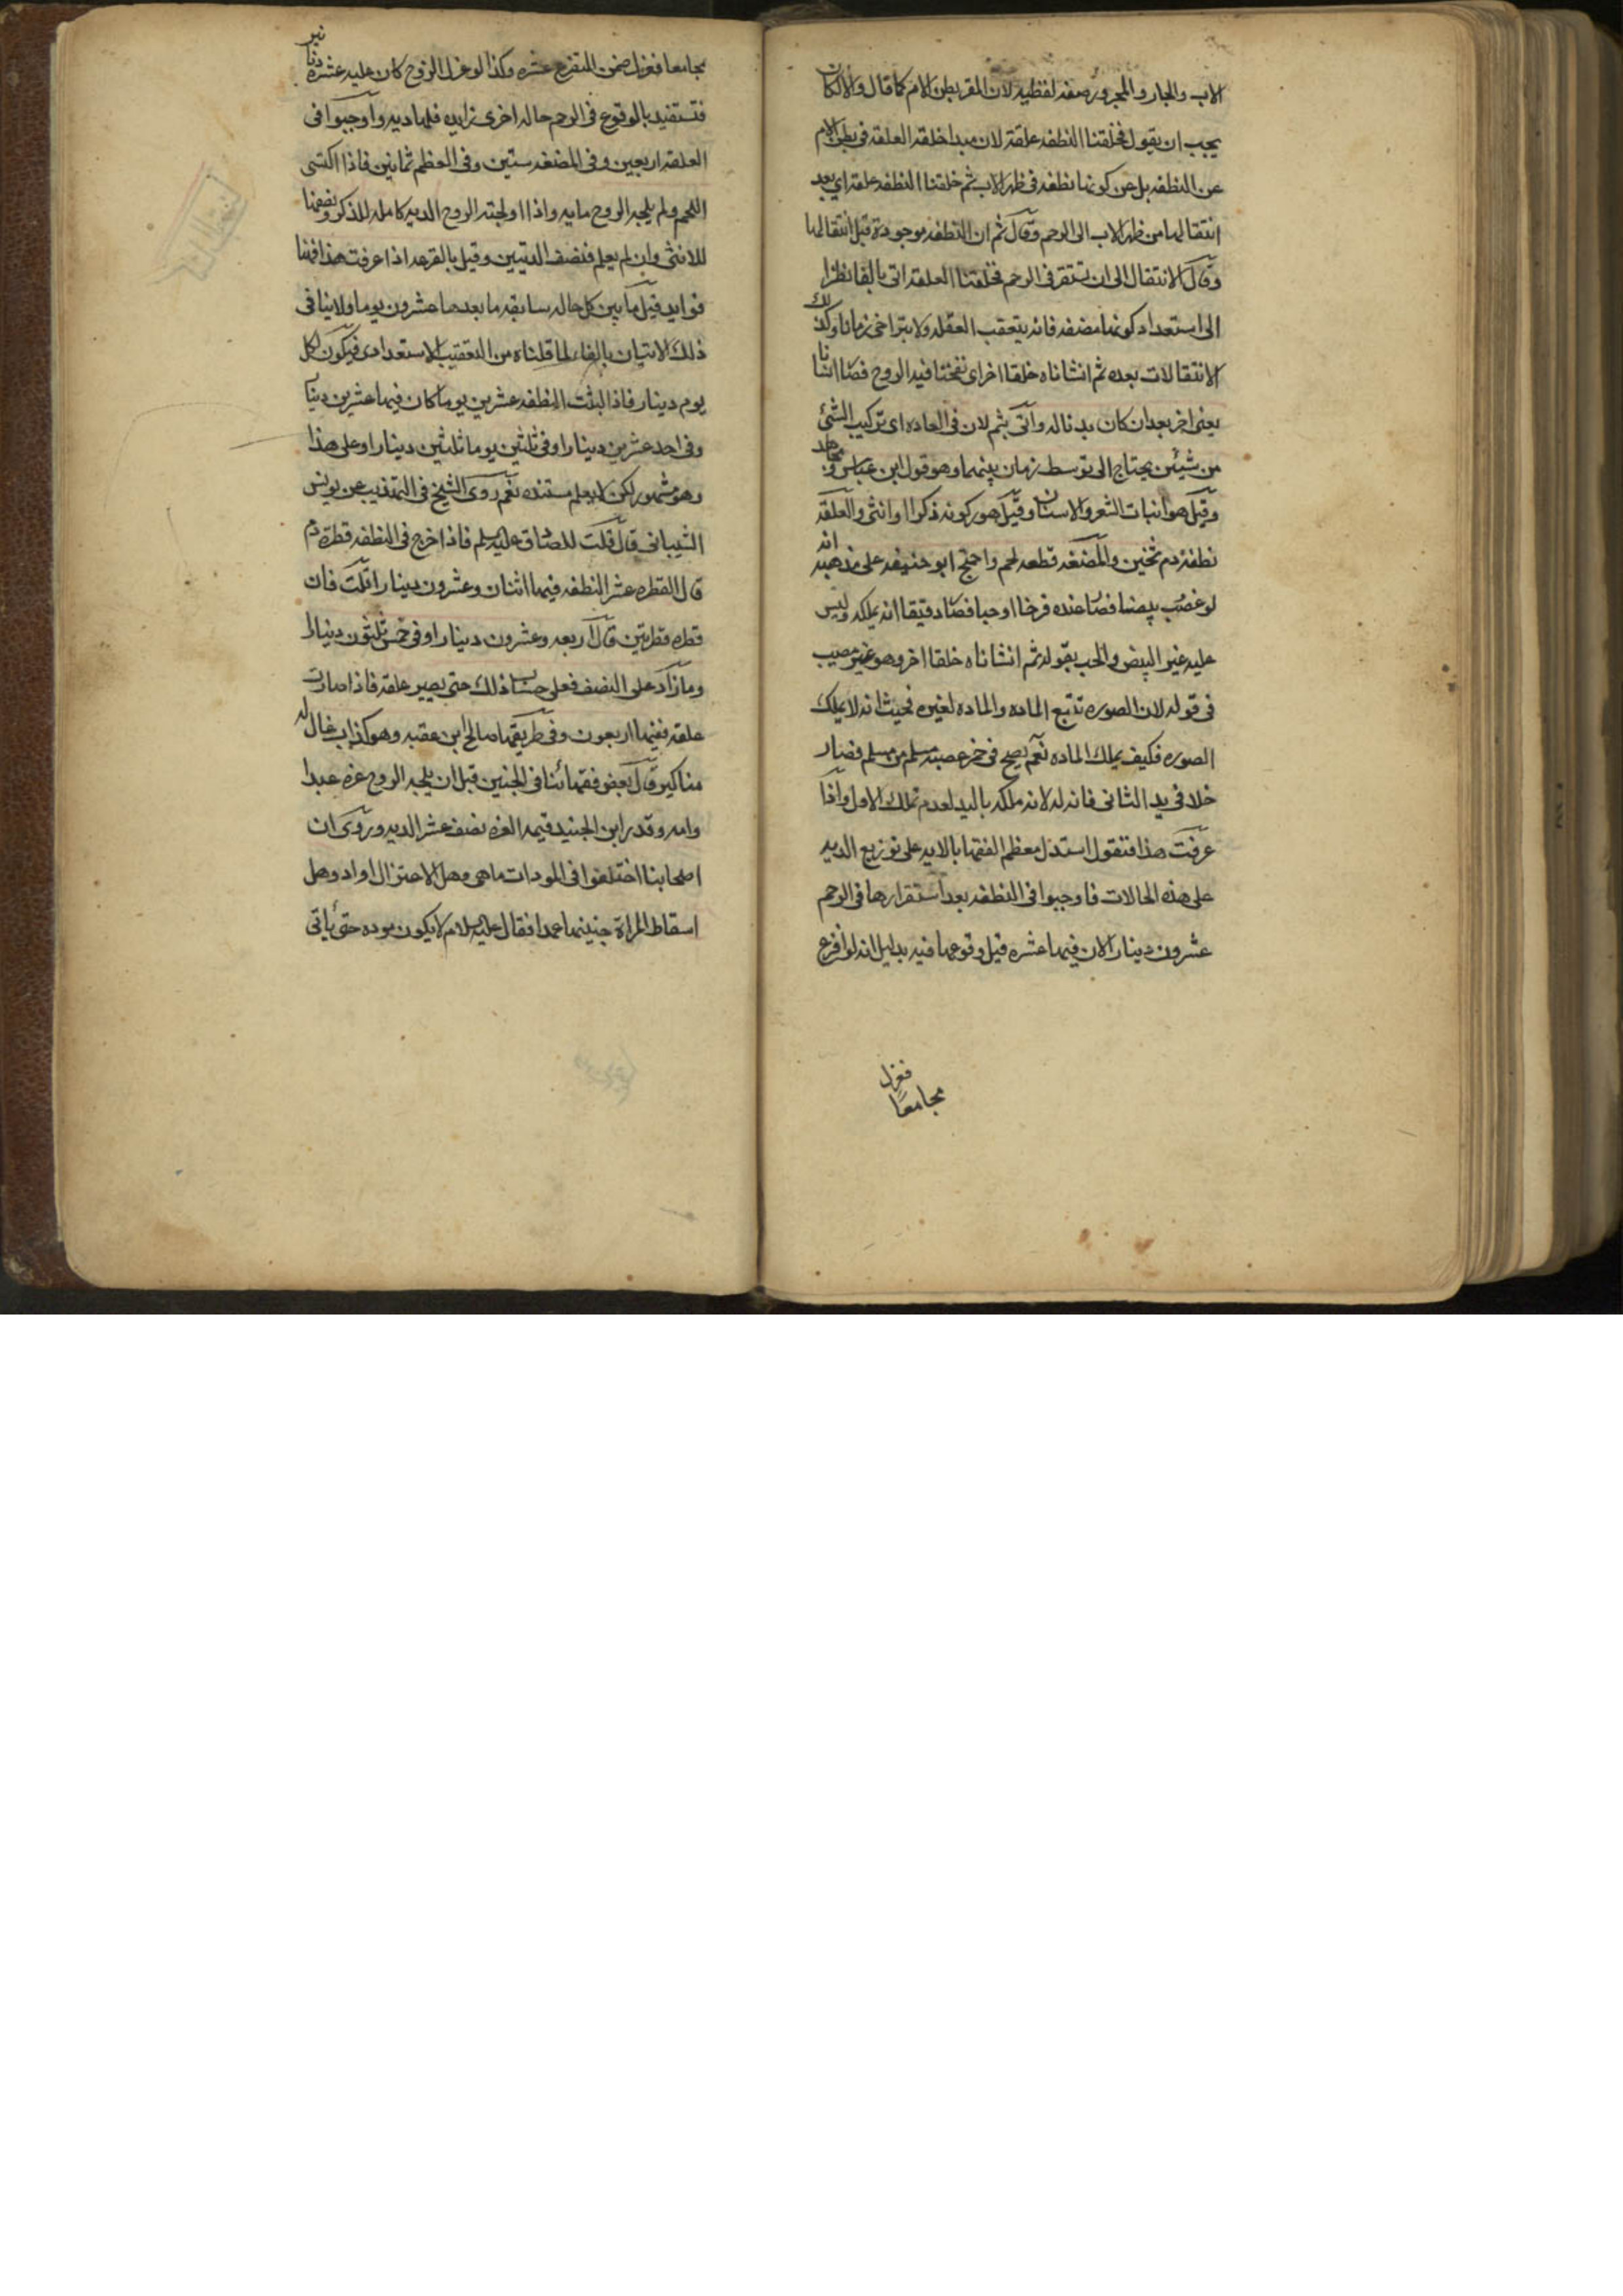 الاب والجار والمجرور صفه لفظيه لان المقر بطن الام كما قال والا لكان
يجب ان يقول فخلقنا النطفه علقة لان مبدا خلقه العلقه فى بطن الام
عن النطفه بل عن كونها نطفه فى ظهر الاب ثم خلقنا النطفه علقه اي بعد
انتقالها من ظهر الاب الى الرحم وقال ثم ان النطفه موجودة قبل انتقالها
وقال الانتقال الى ان تستقر فى الرحم فخلقنا العلقه اتى بالفا نظرا
الى استعداد كونها مضغه فانه يتعقب العقله ولا يتراخى زمانا وكذلك
الانتقالات بعده ثم انشاناه خلقا اخر اى نفخنا فيه الروح فصار انسانا
يعنى اخر بعد ان كان بدناله واتى بثم لان فى العاده اى تركيب الشئ
من شيئين يحتاج الى توسط زمان بينهما وهو قول ابن عباس ومجاهد
وقيل هو انبات الشعر والاسنان وقيل هو كونه ذكرا او انثى والعلقه
نطفة دم ثخين والمضغه قطعه لحم واحتج ابو حنيفه على مذهبه انه
لو غصب بيضا فصار عنده فرخا او حبا فصار دقيقا انه يملكه وليس
عليه غير البيض والحب بقوله ثم انشاناه خلقا اخر وهو غير مصيب
فى قوله لان الصوره تتبع الماده والماده لغيره فحيث انه لا يملك
الصوره فكيف يملك الماده نعم يصح فى خمر غصبه مسلم من مسلم فصار
خلا فى يد الثانى فانه له لانه ملكه باليد لعدم تملك الاول واذا
عرفت هذا فنقول استدل معظم الفقها بالايه على توزيع الديه
على هذه الحالات فاوجبوا فى النطفه بعد استقرارها فى الرحم
عشرون دينارا لان فيها عشره قبل وقوعها فيه بدليل انه لو افزع
فعزل
مجامعا
مجامعا فعزل ضمن المفزع عشره وكذا لو عزل الزوج كان عليه عشره دنانير
فتستفيد بالوقوع فى الرحم حاله اخرى زايده فلها ديه واوجبوا فى
العلقه اربعين وفى المضغه ستين وفى العظم ثمانين فاذا اكتسى
اللحم ولم يلجه الروح مايه واذا اولجته الروح الديه كامله للذكر ونصفها
للانثى وان لم يعلم فنصف الديتين وقيل بالقرعه اذا عرفت هذا فهنا
فوايد قيل ما بين كل حاله سابقه ما بعدها عشرون يوما ولا ينافى
ذلك الاتيان بالفاء لما قلناه من التعقيب الاستعدادى فيكون لكل
يوم دينار فاذا لبثت النطفه عشرين يوما كان فيها عشرين دينارا
وفى احد عشرين دينارا وفى ثلثين يوما ثلثين دينارا وعلى هذا
وهو مشهور لكن لا يعلم مستنده نعم روى الشيخ فى التهذيب عن يونس
الشيبانى قال قلت للصادق عليه السلم فاذا خرج فى النطفه قطرة دم
قال القطره عشر النطفه فيها اثنان وعشرون دينارا قلت فان
قطره قطرتين قال اربعه وعشرون دينارا وفى خمس ثلثون دينارا
وما زاد على النصف فعلى حساب ذلك حتى يصير علقه فاذا صارت
علقه ففيها اربعون وفى طريقها صالح ابن عقبه وهو كذاب غال له
مناكير قال بعض فقهائنا فى الجنين قبل ان يلجه الروح غره عبدا
وامه وقدر ابن الجنيد قيمه الغره نصف عشر الديه وروى ان
اصحابنا اختلفوا فى الموودات ما هى وهل الاختزال او اد وهل
اسقاط المراة جنينها عمدا فقال عليه السلام لا يكون موده حتى ياتى